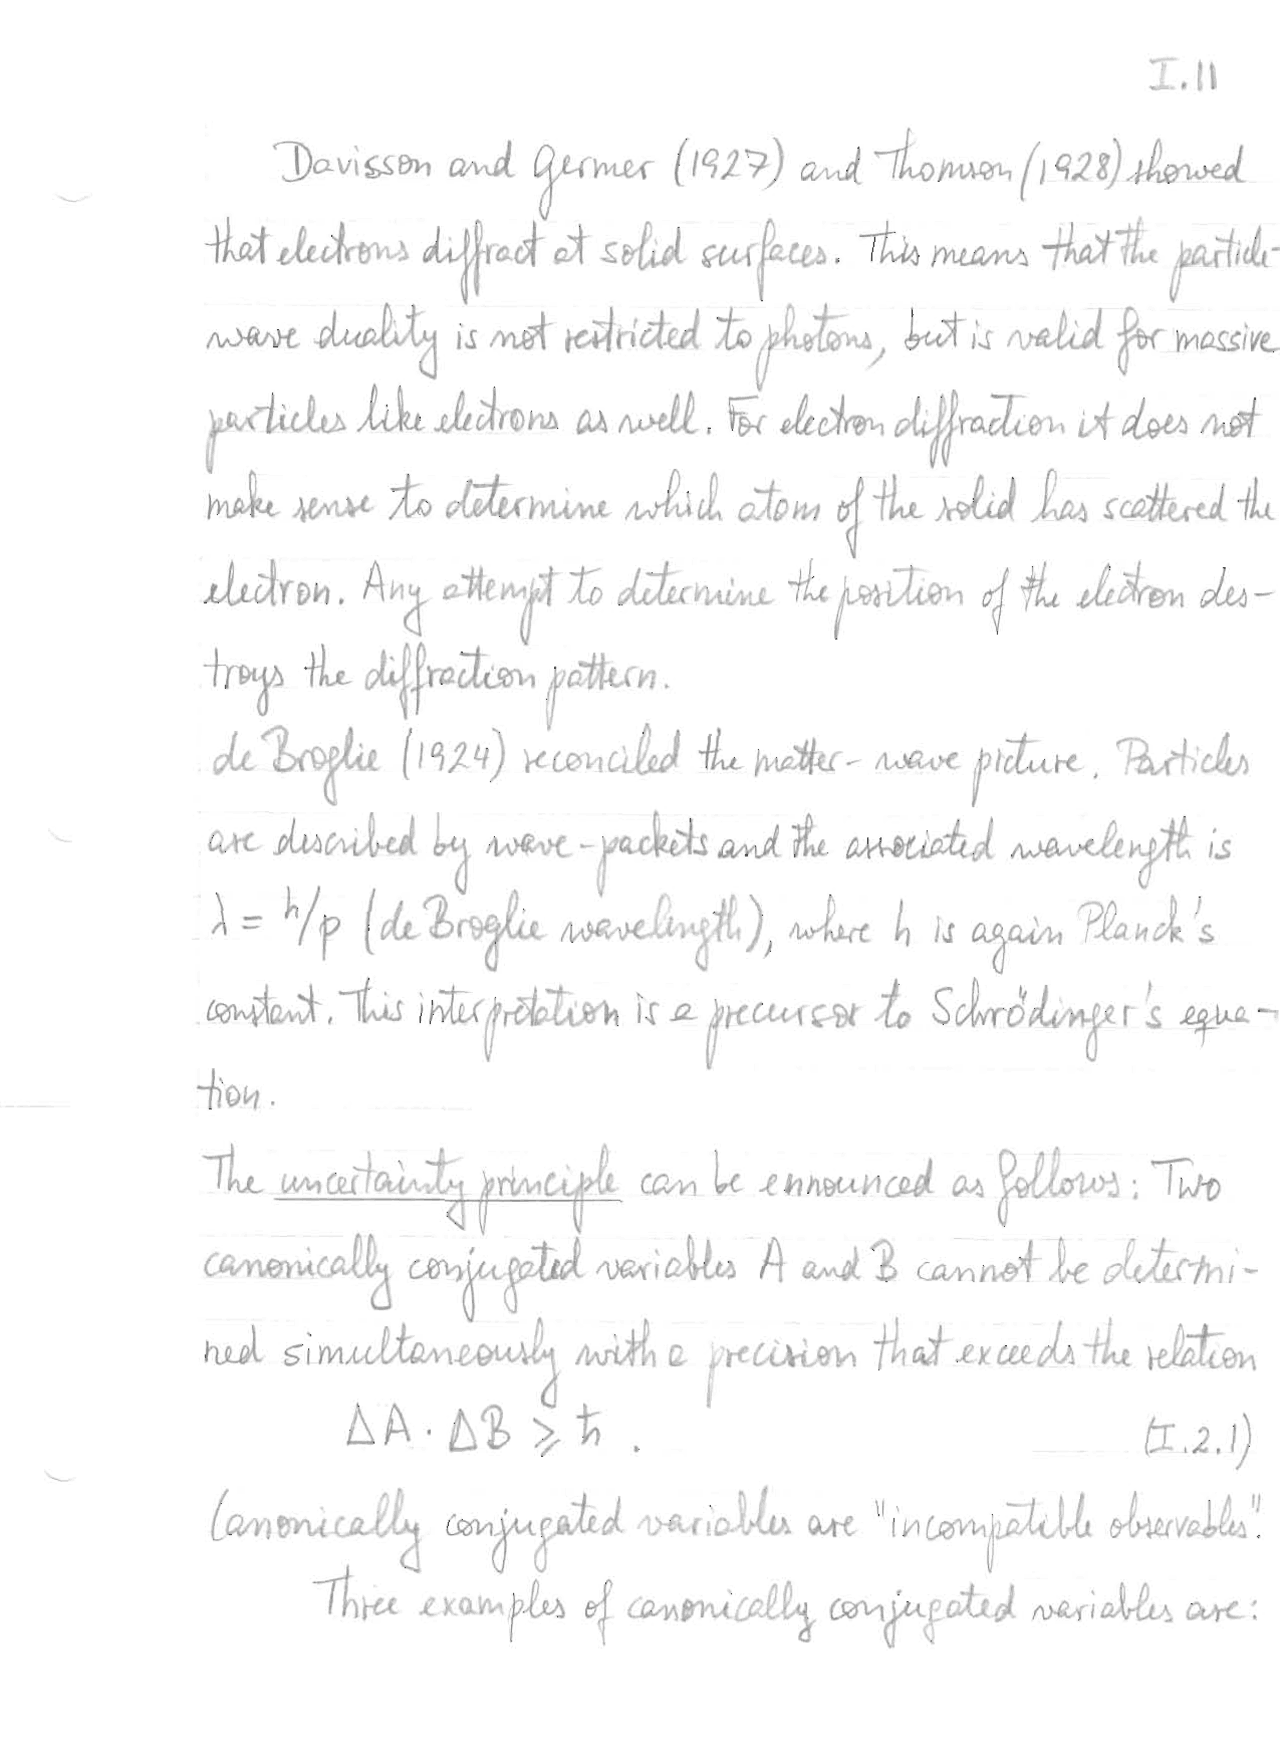 I.11
Davisson and Germer (1927) and Thomson (1928) showed
that electrons diffract at solid surfaces. This means that the particle-
wave duality is not restricted to photons, but is valid for massive
particles like electrons as well. For electron diffraction it does not
make sense to determine which atom of the solid has scattered the
electron. Any attempt to determine the position of the electron des-
troys the diffraction pattern.
de Broglie (1924) reconciled the matter-wave picture. Particles
are described by wave-packets and the associated wavelength is
λ = h/p (de Broglie wavelength), where h is again Planck's
constant. This interpretation is a precursor to Schrödinger's equa-
tion.
The uncertainty principle can be ennounced as follows: Two
canonically conjugated variables A and B cannot be determi-
ned simultaneously with a precision that exceeds the relation
ΔA · ΔB ⩾ ħ . (I.2.1)
Canonically conjugated variables are "incompatible observables".
Three examples of canonically conjugated variables are: